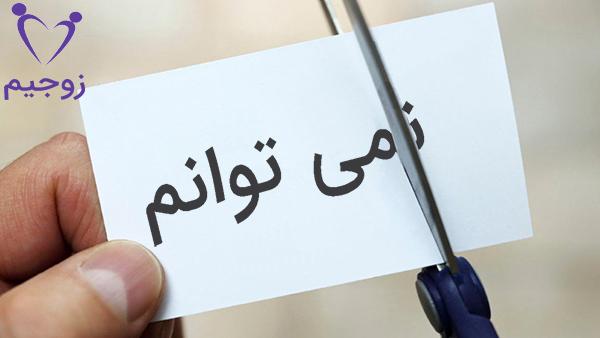 زوجیم
نمی توانم